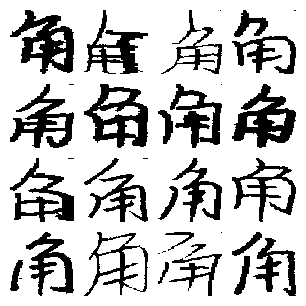 角角角角
角角角角
角角角角
角角角角